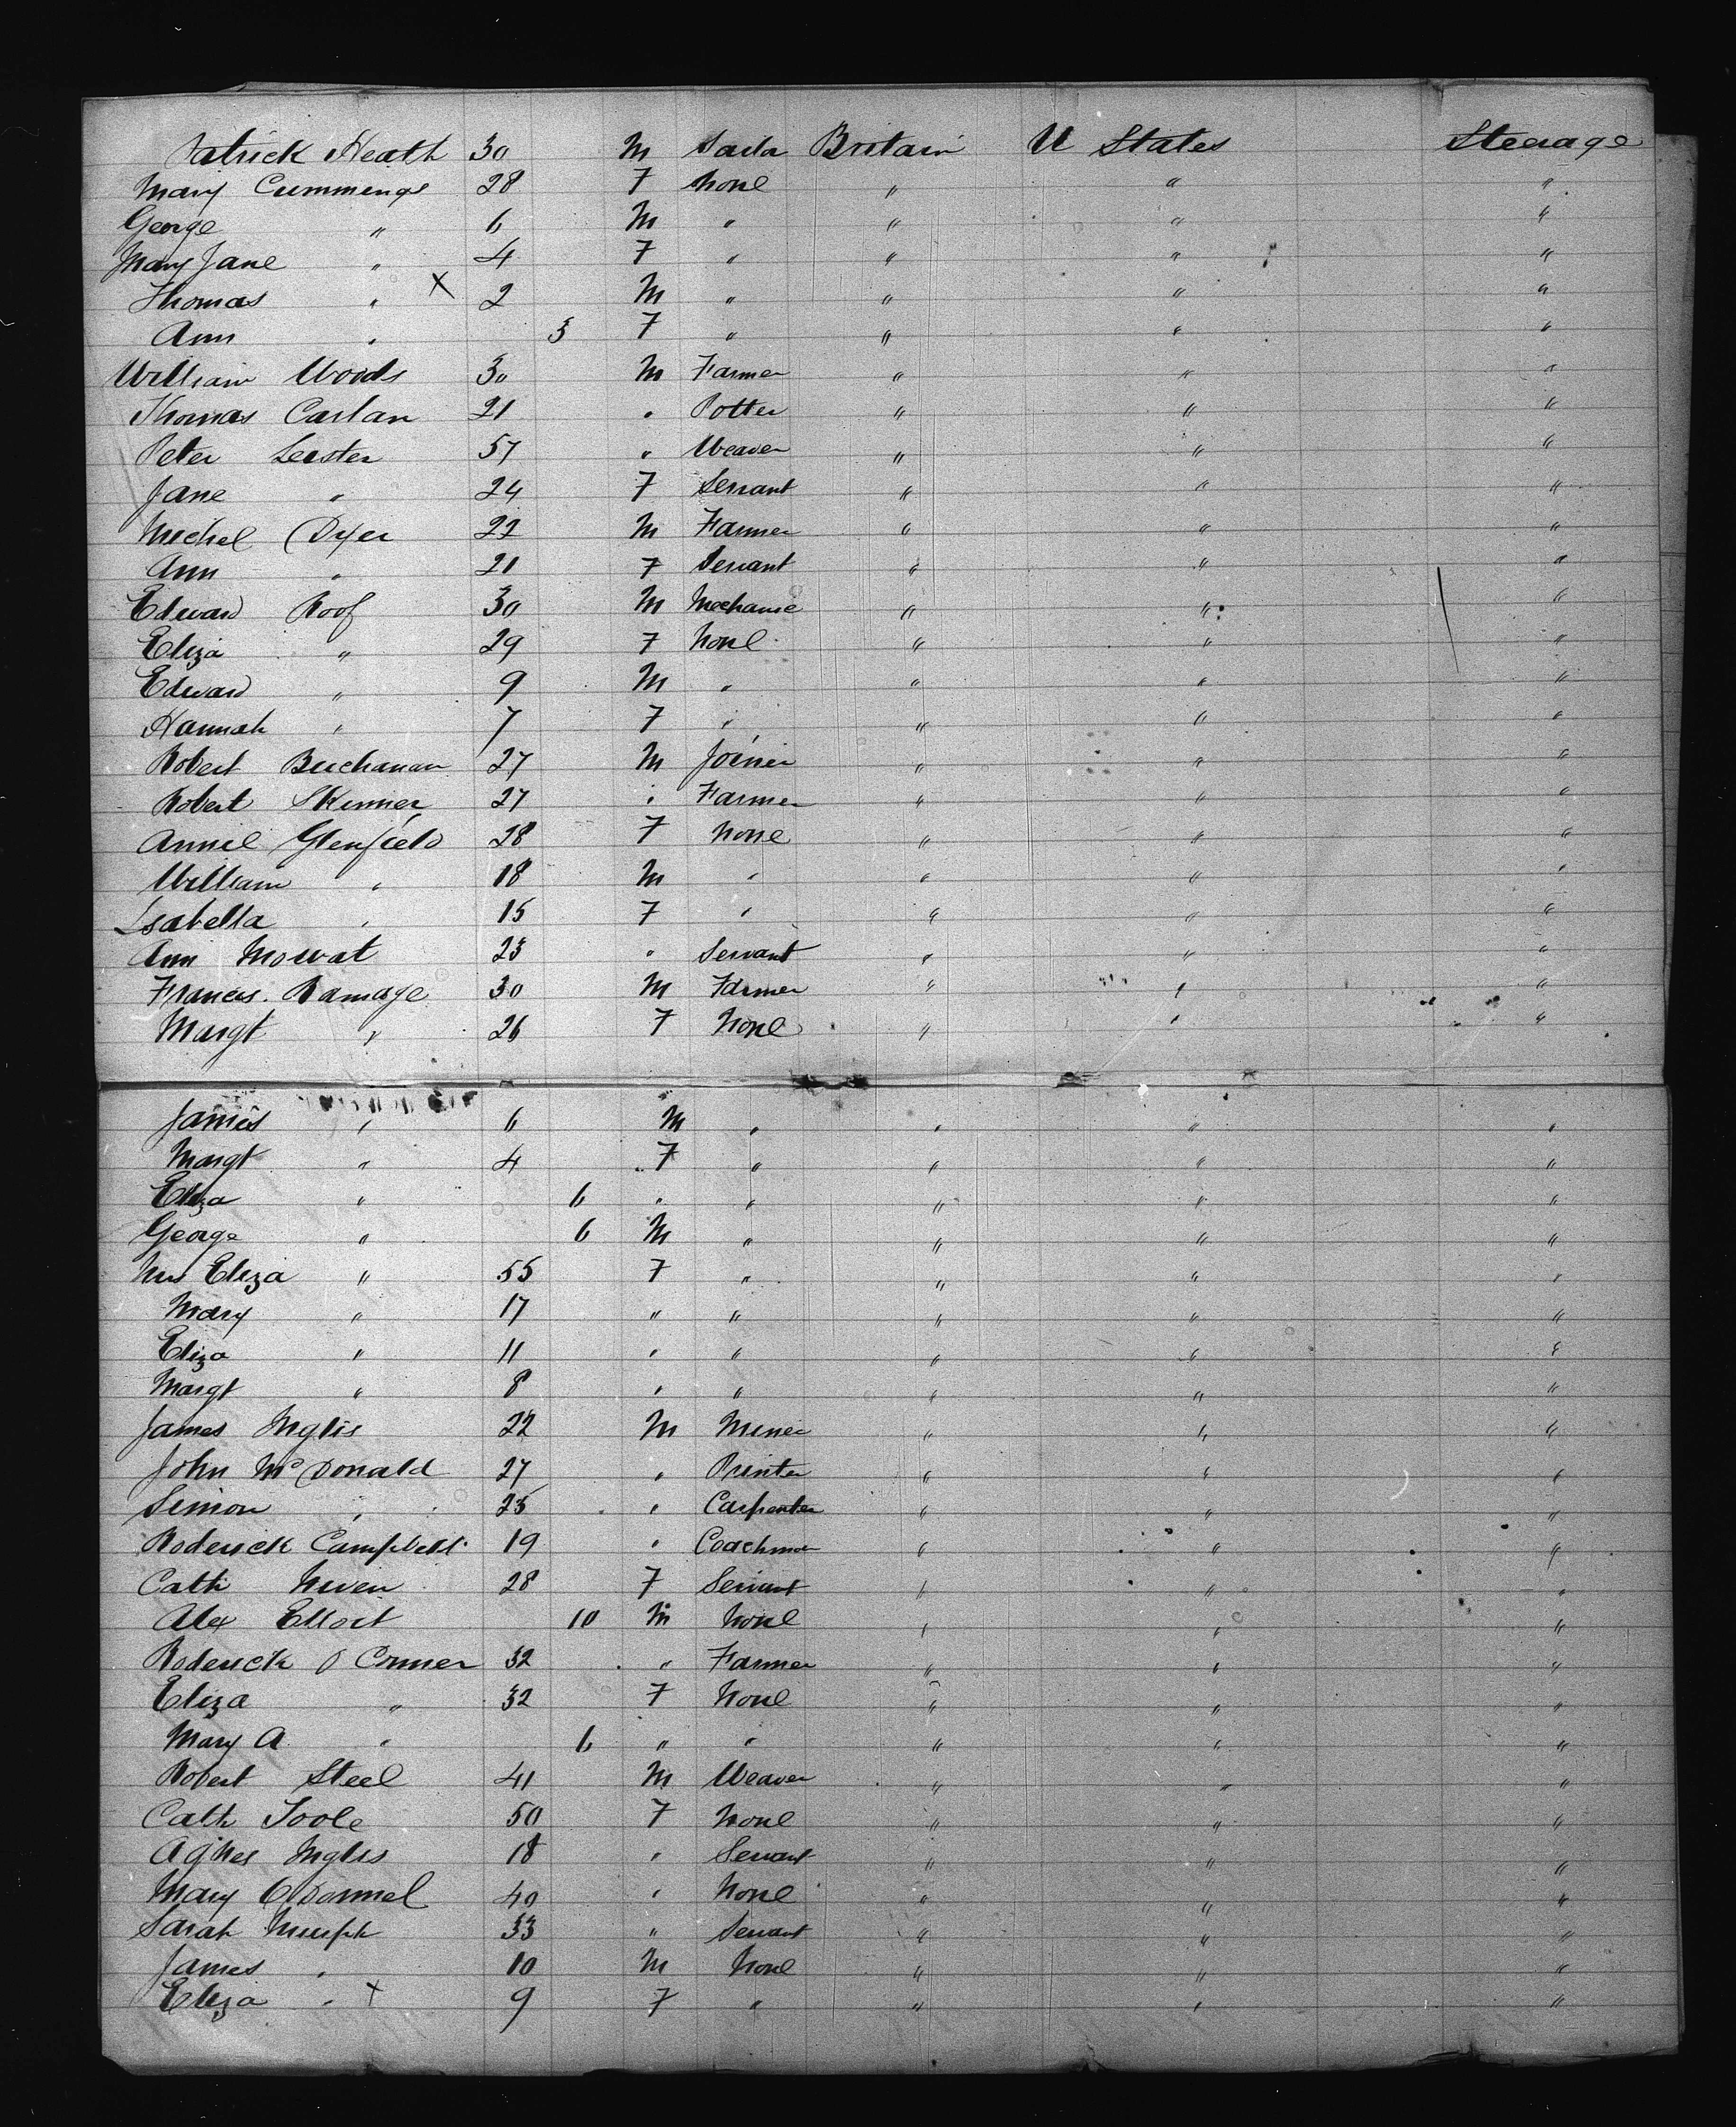 Patrick Heath 30 M Saila Britain U States Steerage
Mary Cummings 28 F None " " "
George " 6 M " " " "
Mary Jane " 4 F " " " "
Thomas " X 2 M " " " "
Ann " 3 F " " " "
William Woods 30 M Farmer " " "
Thomas Carlan 21 " Potter " " "
Peter Lester 57 " Weaver " " "
Jane " 24 F Servant " " "
Michel Dyer 22 M Farmer " " "
Ann " 21 F Servant " " "
Edward Roof 30 M Mechanic " " "
Eliza " 29 F None " " "
Edward " 9 M " " " "
Hannah " 7 F " " " "
Robert Buchanan 27 M Joiner " " "
Robert Skinner 27 " Farmer " " "
Annie Glenfield 28 F None " " "
William " 18 M " " " "
Isabella " 15 F " " " "
Ann Mowat 23 " Servant " " "
Francis Ramage 30 M Farmer " " "
Margt " 26 F None " " "
James " 6 M " " " "
Margt " 4 F " " " "
Eliza " 6 " " " " "
George " 6 M " " " "
Mrs Eliza " 55 F " " " "
Mary " 17 " " " " "
Eliza " 11 " " " " "
Margt " 8 " " " " "
James Inglis 22 M Miner " " "
John McDonald 27 " Printer " " "
Simon " 25 " Carpenter " " "
Roderick Campbell 19 " Coachman " " "
Cath 28 F Servant " " "
Alex Elliot 10 M None " " "
Roderick O Conner 32 " Farmer " " "
Eliza " 32 F None " " "
Mary A " 6 " " " " "
Robert Steel 41 M Weaver " " "
Cath Toole 50 F None " " "
Agnes Inglis 18 " Servant " " "
Mary O Donnel 40 " None " " "
Sarah Murph 33 " Servant " " "
James " 10 M None " " "
Eliza " X 9 F " " " "